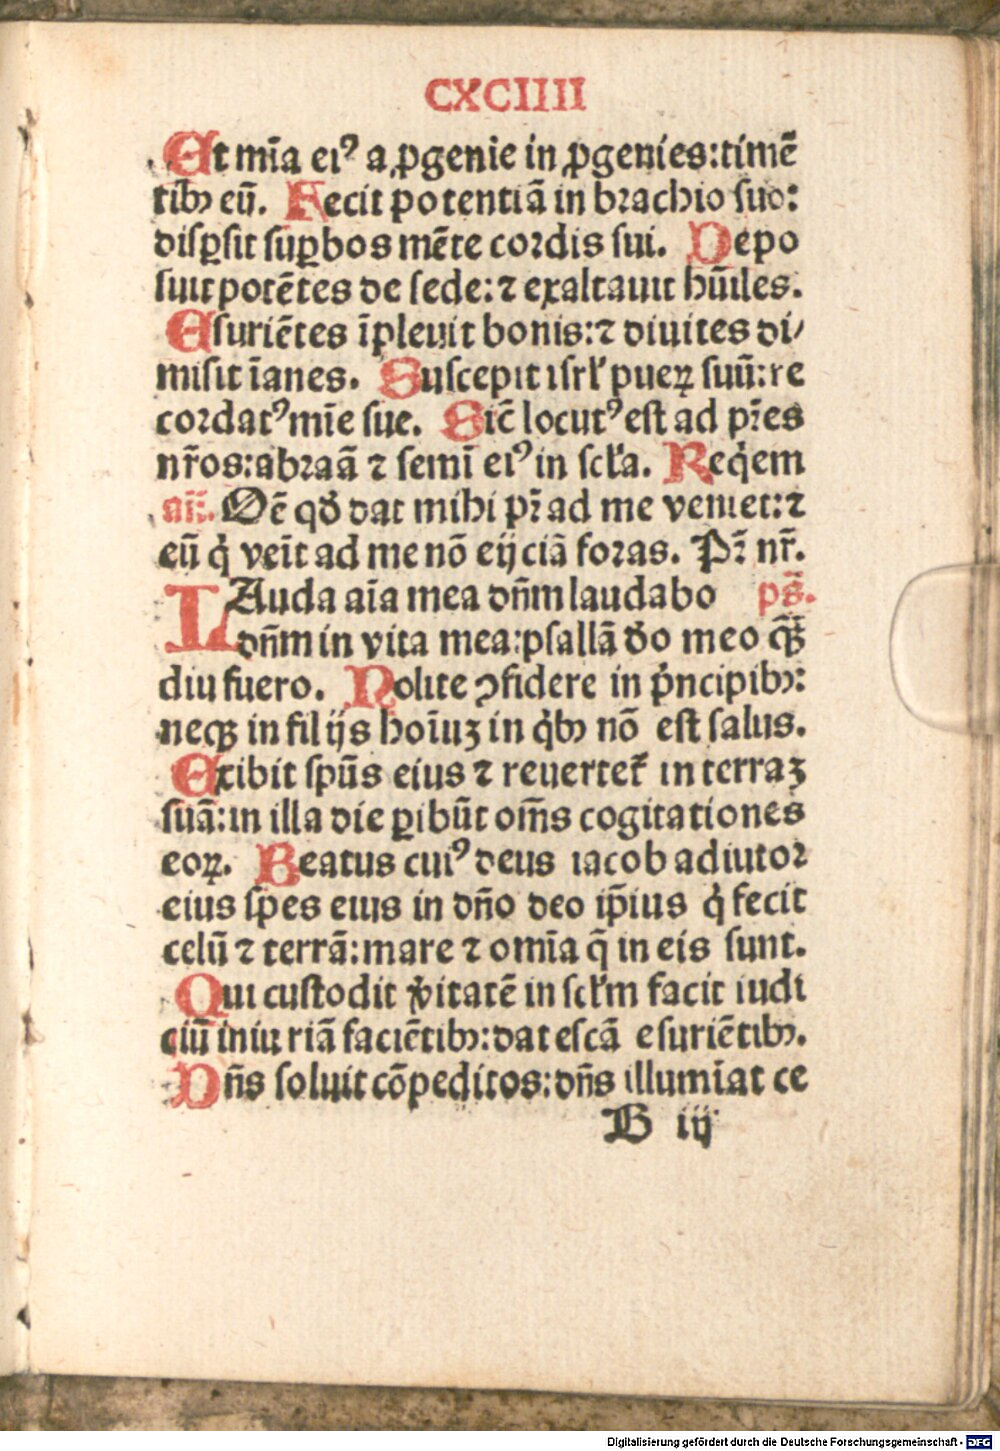 CXCIIII
Et mīa eiꝰ a ꝓgenie in ꝓgenies: timē
tibꝫ eū. Fecit potentiā in brachio ſuo:
diſꝑſit ſuꝑbos mēte cordis ſui. Depo
ſuit potētes de ſede: ⁊ exaltauit hūiles.
Eſuriētes īpleuit bonis: ⁊ diuites di/
miſit īanes. Suſcepit iſrl̛ pueꝝ ſuū: re
cordatꝰ mīe ſue. Sic̄ locutꝰ eſt ad pr̄es
nr̄os: abraā ⁊ ſemī eiꝰ in ſcl̛a. Req̇em
añ. Oē qď dat mihi pr̄ ad me veniet: ⁊
eū q̇ veīt ad me nō eijciā foras. Pr̄ nr̄.
LAuda aīa mea dn̄m laudabo ps̄.
dn̄m in vita mea: pſallā ďo meo q̄ꝫ
diu fuero. Nolite ꝯfidere in pṙncipibꝫ:
neqꝫ in filijs hoīuꝫ in q̇bꝫ nō eſt ſalus.
Exibit ſpūs eius ⁊ reuertet̛ in terraꝫ
ſuā: in illa die ꝑibūt om̄s cogitationes
eoꝝ. Beatus cuiꝰ deus iacob adiutor
eius ſpes eius in dn̄o deo ip̄ius q̇ fecit
celū ⁊ terrā: mare ⁊ omīa q̄ in eis ſunt.
Qui cuſtodit v̛itatē in ſcl̛m facit iudi
ciū iniuriā faciētibꝫ: dat eſcā eſuriētibꝫ.
Dn̄s ſoluit cōpeditos: dn̄s illumīat ce
B iij
Digitalisierung gefördert durch die Deutsche Forschungsgemeinschaft - DFG